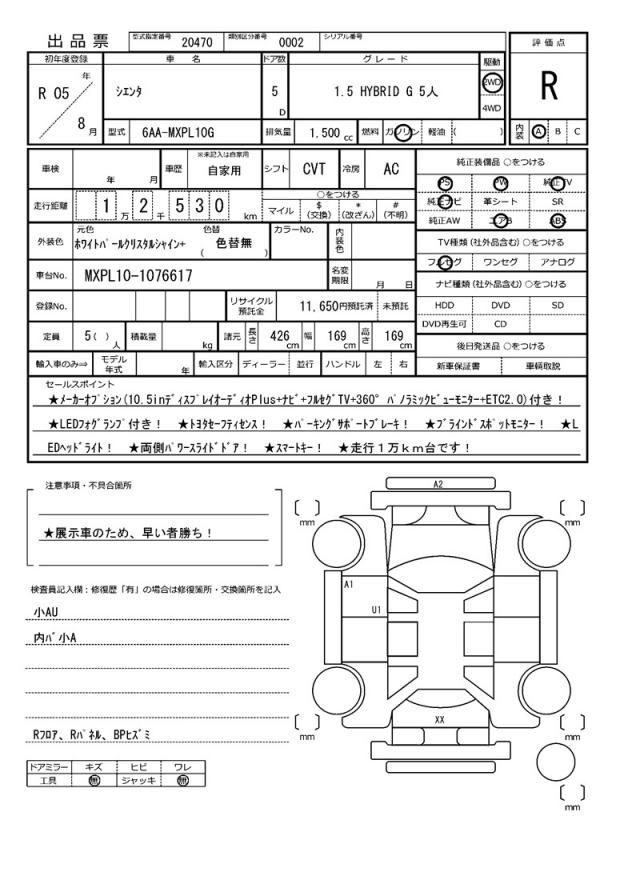 出品票 型式指定番号 20470 類別区分番号 0002 シリアル番号
評価点
初年度登録 車名 ドア数 グレード 駆動
R 05 年 8 月 シエンタ 5 D 1.5 HYBRID G 5人 2WD 4WD R
型式 6AA-MXPL10G 排気量 1.500 cc 燃料 ガソリン 軽油 ( ) 内装 A B C
車検 年 月 車歴 ※未記入は自家用 自家用 シフト CVT 冷房 AC 純正装備品 ○をつける
PS PW 純正TV
走行距離 1 万 2 千 5 3 0 km ○をつける マイル $ (交換) * (改ざん) # (不明) 純正ナビ 革シート SR
純正AW エアB ABS
外装色 元色 ホワイトパールクリスタルシャイン+ 色替 ( 色替無 ) カラーNo. 内装色 TV種類(社外品含む)○をつける
フルセグ ワンセグ アナログ
車台No. MXPL10-1076617 名変期限 月 日 ナビ種類(社外品含む)○をつける
登録No. リサイクル預託金 11,650円預託済 未預託 HDD DVD SD
DVD再生可 CD
定員 5( ) 人 積載量 kg 諸元 長さ 426 cm 幅 169 cm 高さ 169 cm 後日発送品 ○をつける
輸入車のみ⇒ モデル年式 年 輸入区分 ディーラー 並行 ハンドル 左 右 新車保証書 車輌取説
セールスポイント
★メーカーオプション(10.5inディスプレイオーディオPlus+ナビ+フルセグTV+360° パノラミックビューモニター+ETC2.0)付き!
★LEDフォグランプ付き! ★トヨタセーフティセンス! ★パーキングサポートブレーキ! ★ブラインドスポットモニター! ★L
EDヘッドライト! ★両側パワースライドドア! ★スマートキー! ★走行1万km台です!
注意事項・不具合箇所
★展示車のため、早い者勝ち!
検査員記入欄:修復歴「有」の場合は修復箇所・交換箇所を記入
小AU
内バ小A
Rフロア、Rパネル、BPヒズミ
ドアミラー キズ ヒビ ワレ
工具 無 ジャッキ 無
A2
mm mm
A1
U1
XX
mm mm
mm